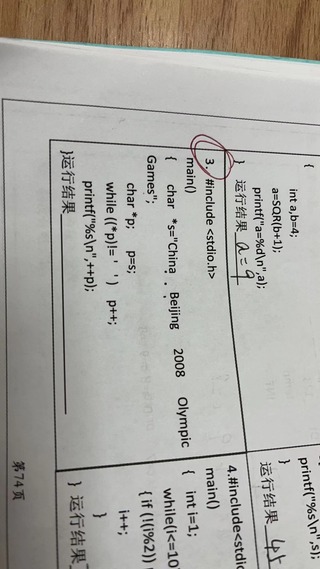 {
int a,b=4;
a=SQR(b+1);
printf("a=%d\n",a);
} 运行结果 a=9
3. #include <stdio.h>
main()
{ char *s="China Beijing 2008 Olympic
Games";
char *p; p=s;
while ((*p)!= ' ') p++;
printf("%s\n",++p);
}运行结果
printf("%s\n",s);
}
运行结果 45
4.#include<stdio
main()
{ int i=1;
while(i<=10
{ if (!(i%2))
i++;
}
} 运行结果
第74页